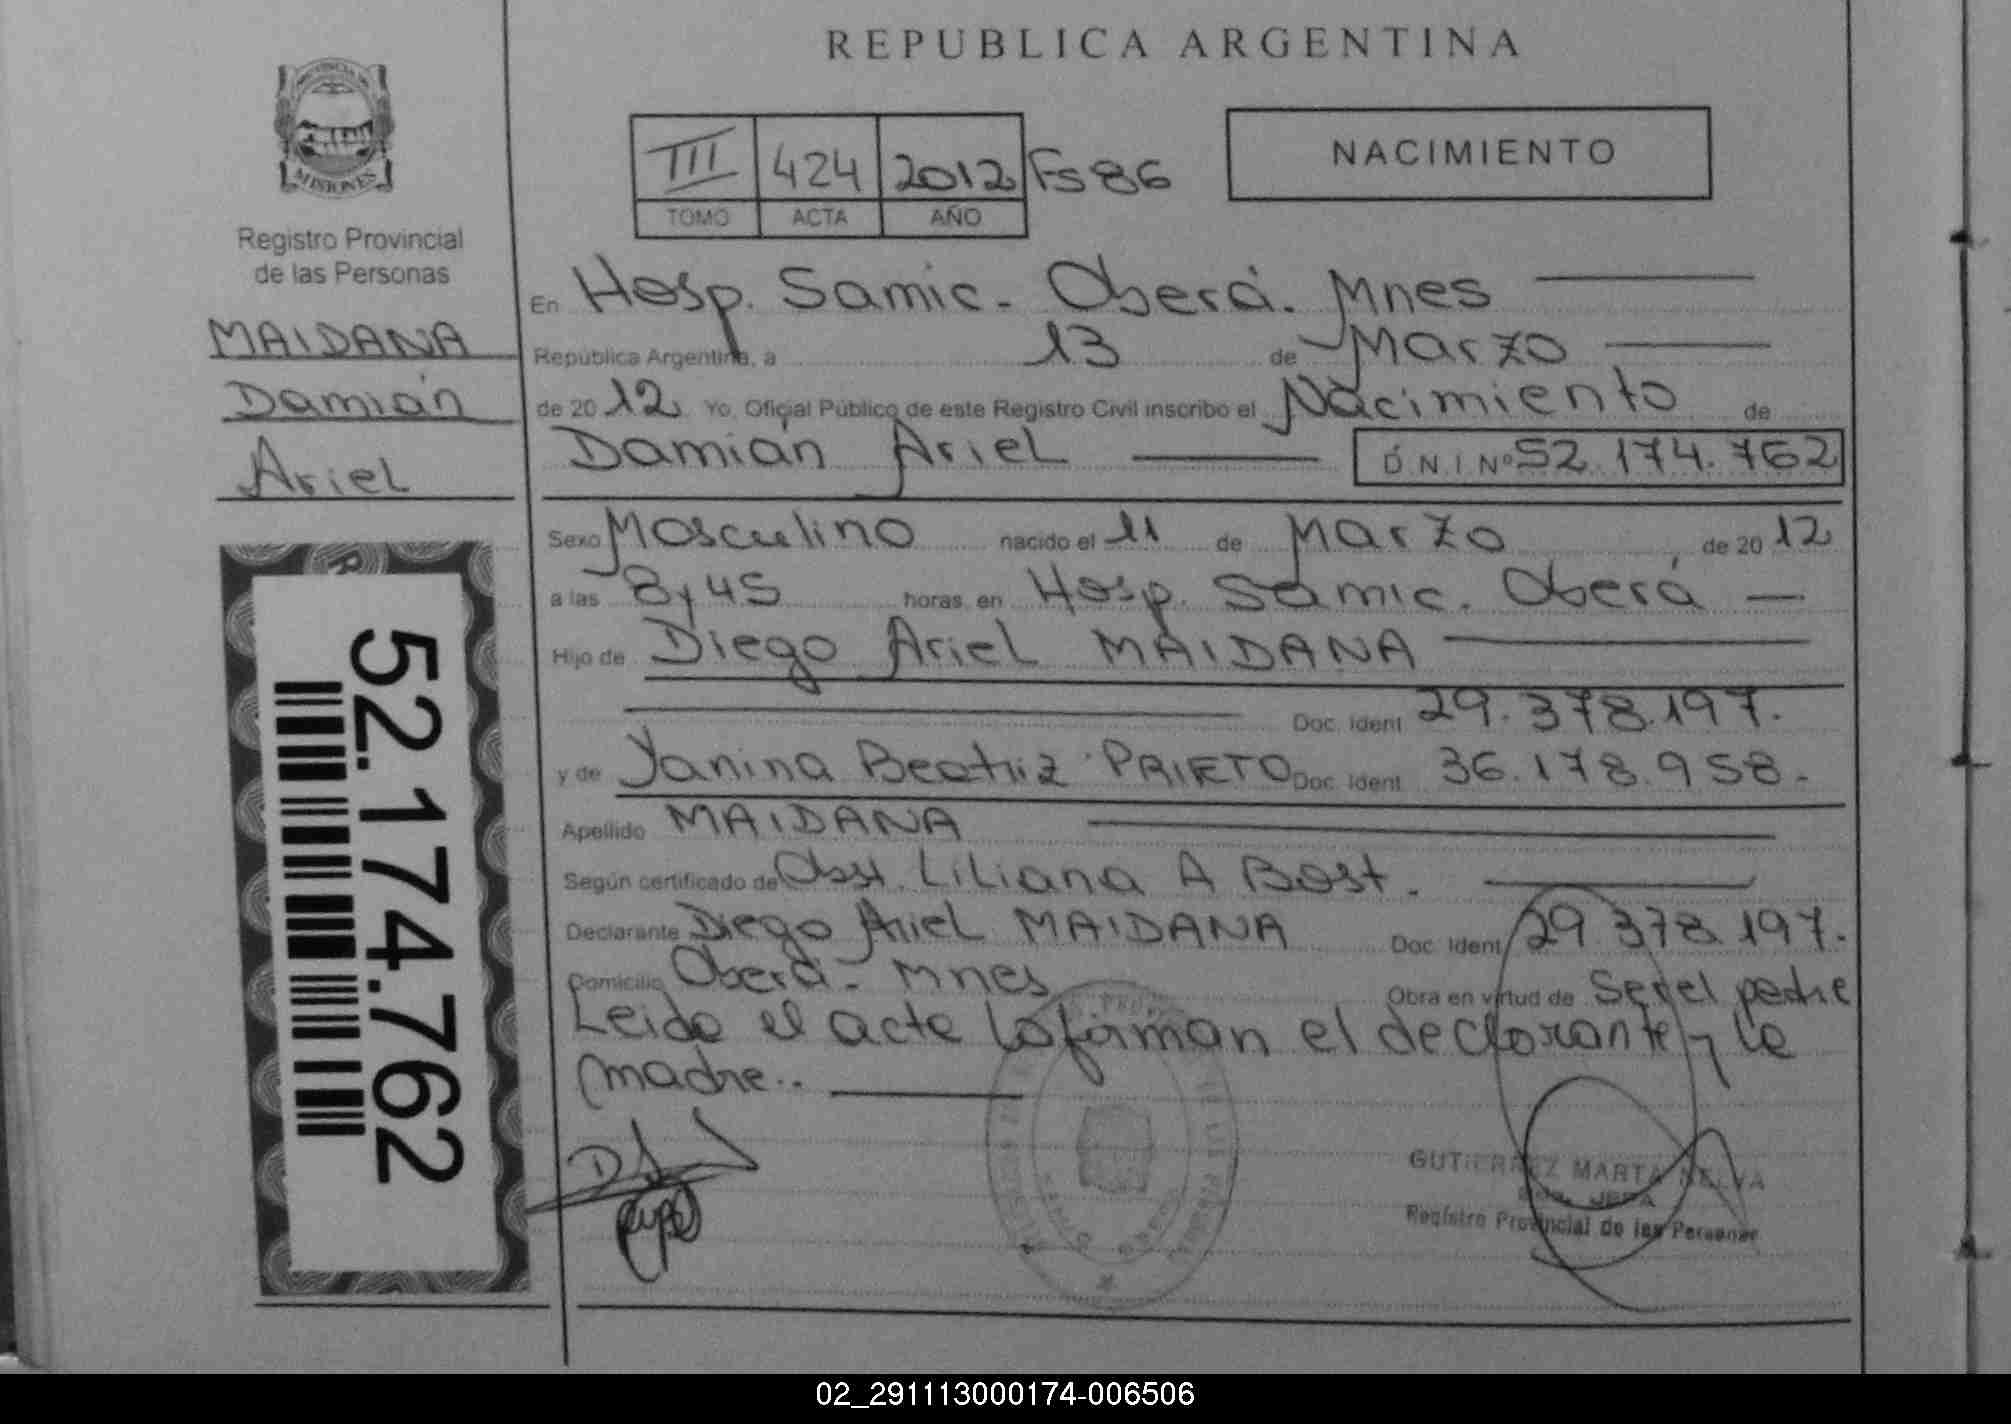 REPUBLICA ARGENTINA
PROVINCIA DE
MISIONES
Registro Provincial
de las Personas
MAIDANA
Damián
Ariel
52.174.762
III 424 2012 Fs 86
TOMO ACTA AÑO
NACIMIENTO
En Hosp. Samic - Oberá. Mnes
República Argentina, a 13 de Marzo
de 20 12 Yo, Oficial Público de este Registro Civil inscribo el Nacimiento de
Damián Ariel D.N.I Nº 52.174.762
Sexo Masculino nacido el 11 de Marzo de 20 12
a las 8y45 horas en Hosp. Samic. Oberá
Hijo de Diego Ariel MAIDANA
Doc. Ident 29.378.197.
y de Yanina Beatriz PRIETO Doc. Ident 36.178.958.
Apellido MAIDANA
Según certificado de Obst. Liliana A Bost.
Declarante Diego Ariel MAIDANA Doc. Ident 29.378.197.
Domicilio Oberá - Mnes Obra en virtud de Ser el padre
Leida el acta la firman el declarante y la
madre..
GUTIERREZ MARTA SELVA
JEFA
Registro Provincial de las Personas
02_291113000174-006506